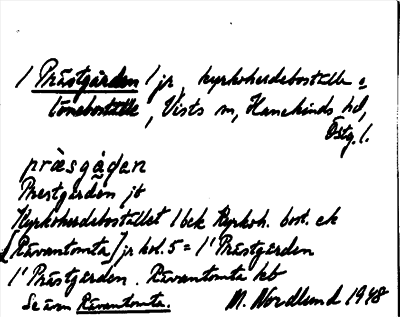 1 Prästgården 1 jr, kyrkoherdeboställe o
löneboställe, Vists sn, Hanekinds hd,
Östg. l.
prä̀sgå̀ḍan
Prestgården jb
Kyrkoherdebostället 1 bek Kyrkoh. bost. ek
[Rävantomta] jr kol. 5 = 1' Prästgården
1' Prästgården. Rävantomta kb
Se även Rävantomta. M. Nordlund 1948